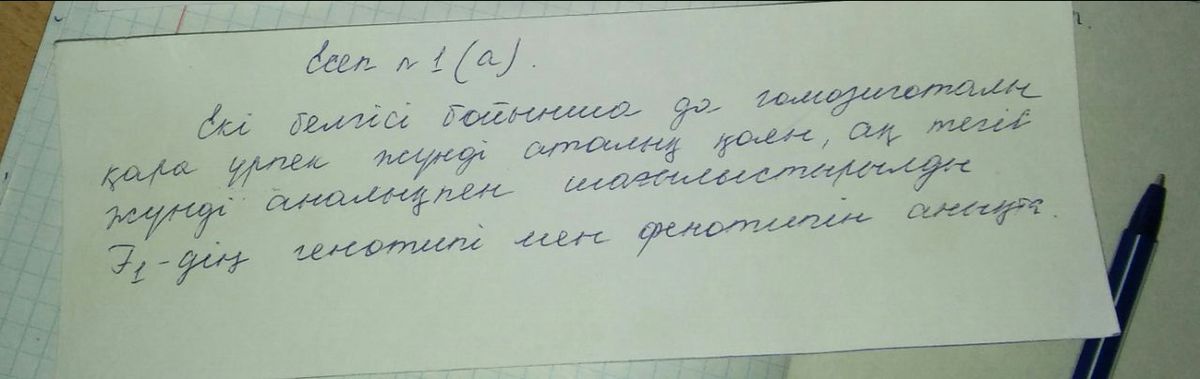 Есеп n 1 (а).
Екі белгісі бойынша да гомозиготалы
қара үрпек жүнді аталық қоян, ақ тегіс
жүнді аналықпен шағылыстырылды
F1-дің генотипі мен фенотипін анықта.